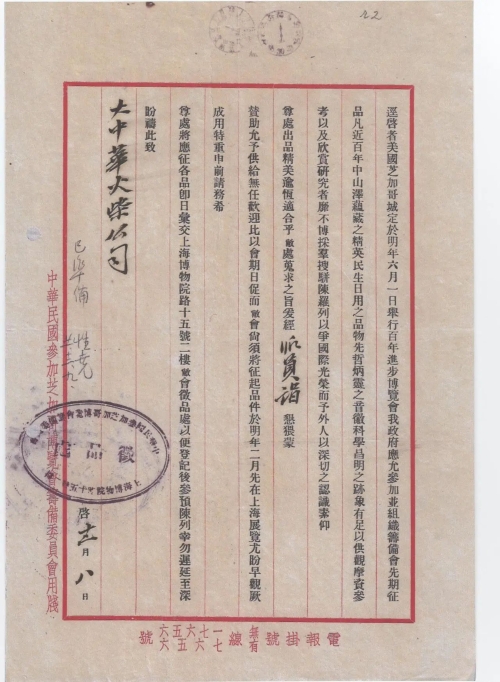 22
逕啓者美國芝加哥城定於明年六月一日舉行百年進步博覽會我政府應允參加並組織籌備會先期征
品凡近百年中山澤蘊藏之精英民生日用之品物先哲炳靈之音徽科學昌明之跡象有足以供觀摩資參
考以及欣賞研究者靡不博採羣搜駢陳羅列以爭國際光榮而予外人以深切之認識素仰
尊處出品精美遒恆適合乎敝處蒐求之旨爰經派員詣懇猥蒙
贊助尤予供給無任歡迎比以會期日促而敝會尙須將征起品件於明年二月先在上海展覽尤盼早觀厥
成用特重申前請務希
尊處將應征各品卽日彙交上海博物院路十五號二樓敝會徵品處以便登記後參預陳列幸勿遲延至深
盼禱此致
大中華火柴公司
已準備
啓 十二月八日
中華民國參加芝加哥博覽會籌備委員會用牋
電報掛號 無線有線 一七六六五五六六 號